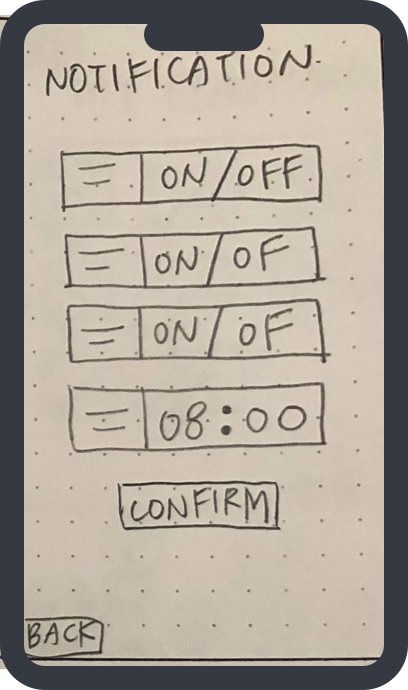 NOTIFICATION.
ON/OFF
ON/OF
ON/OF
08:00
CONFIRM
BACK